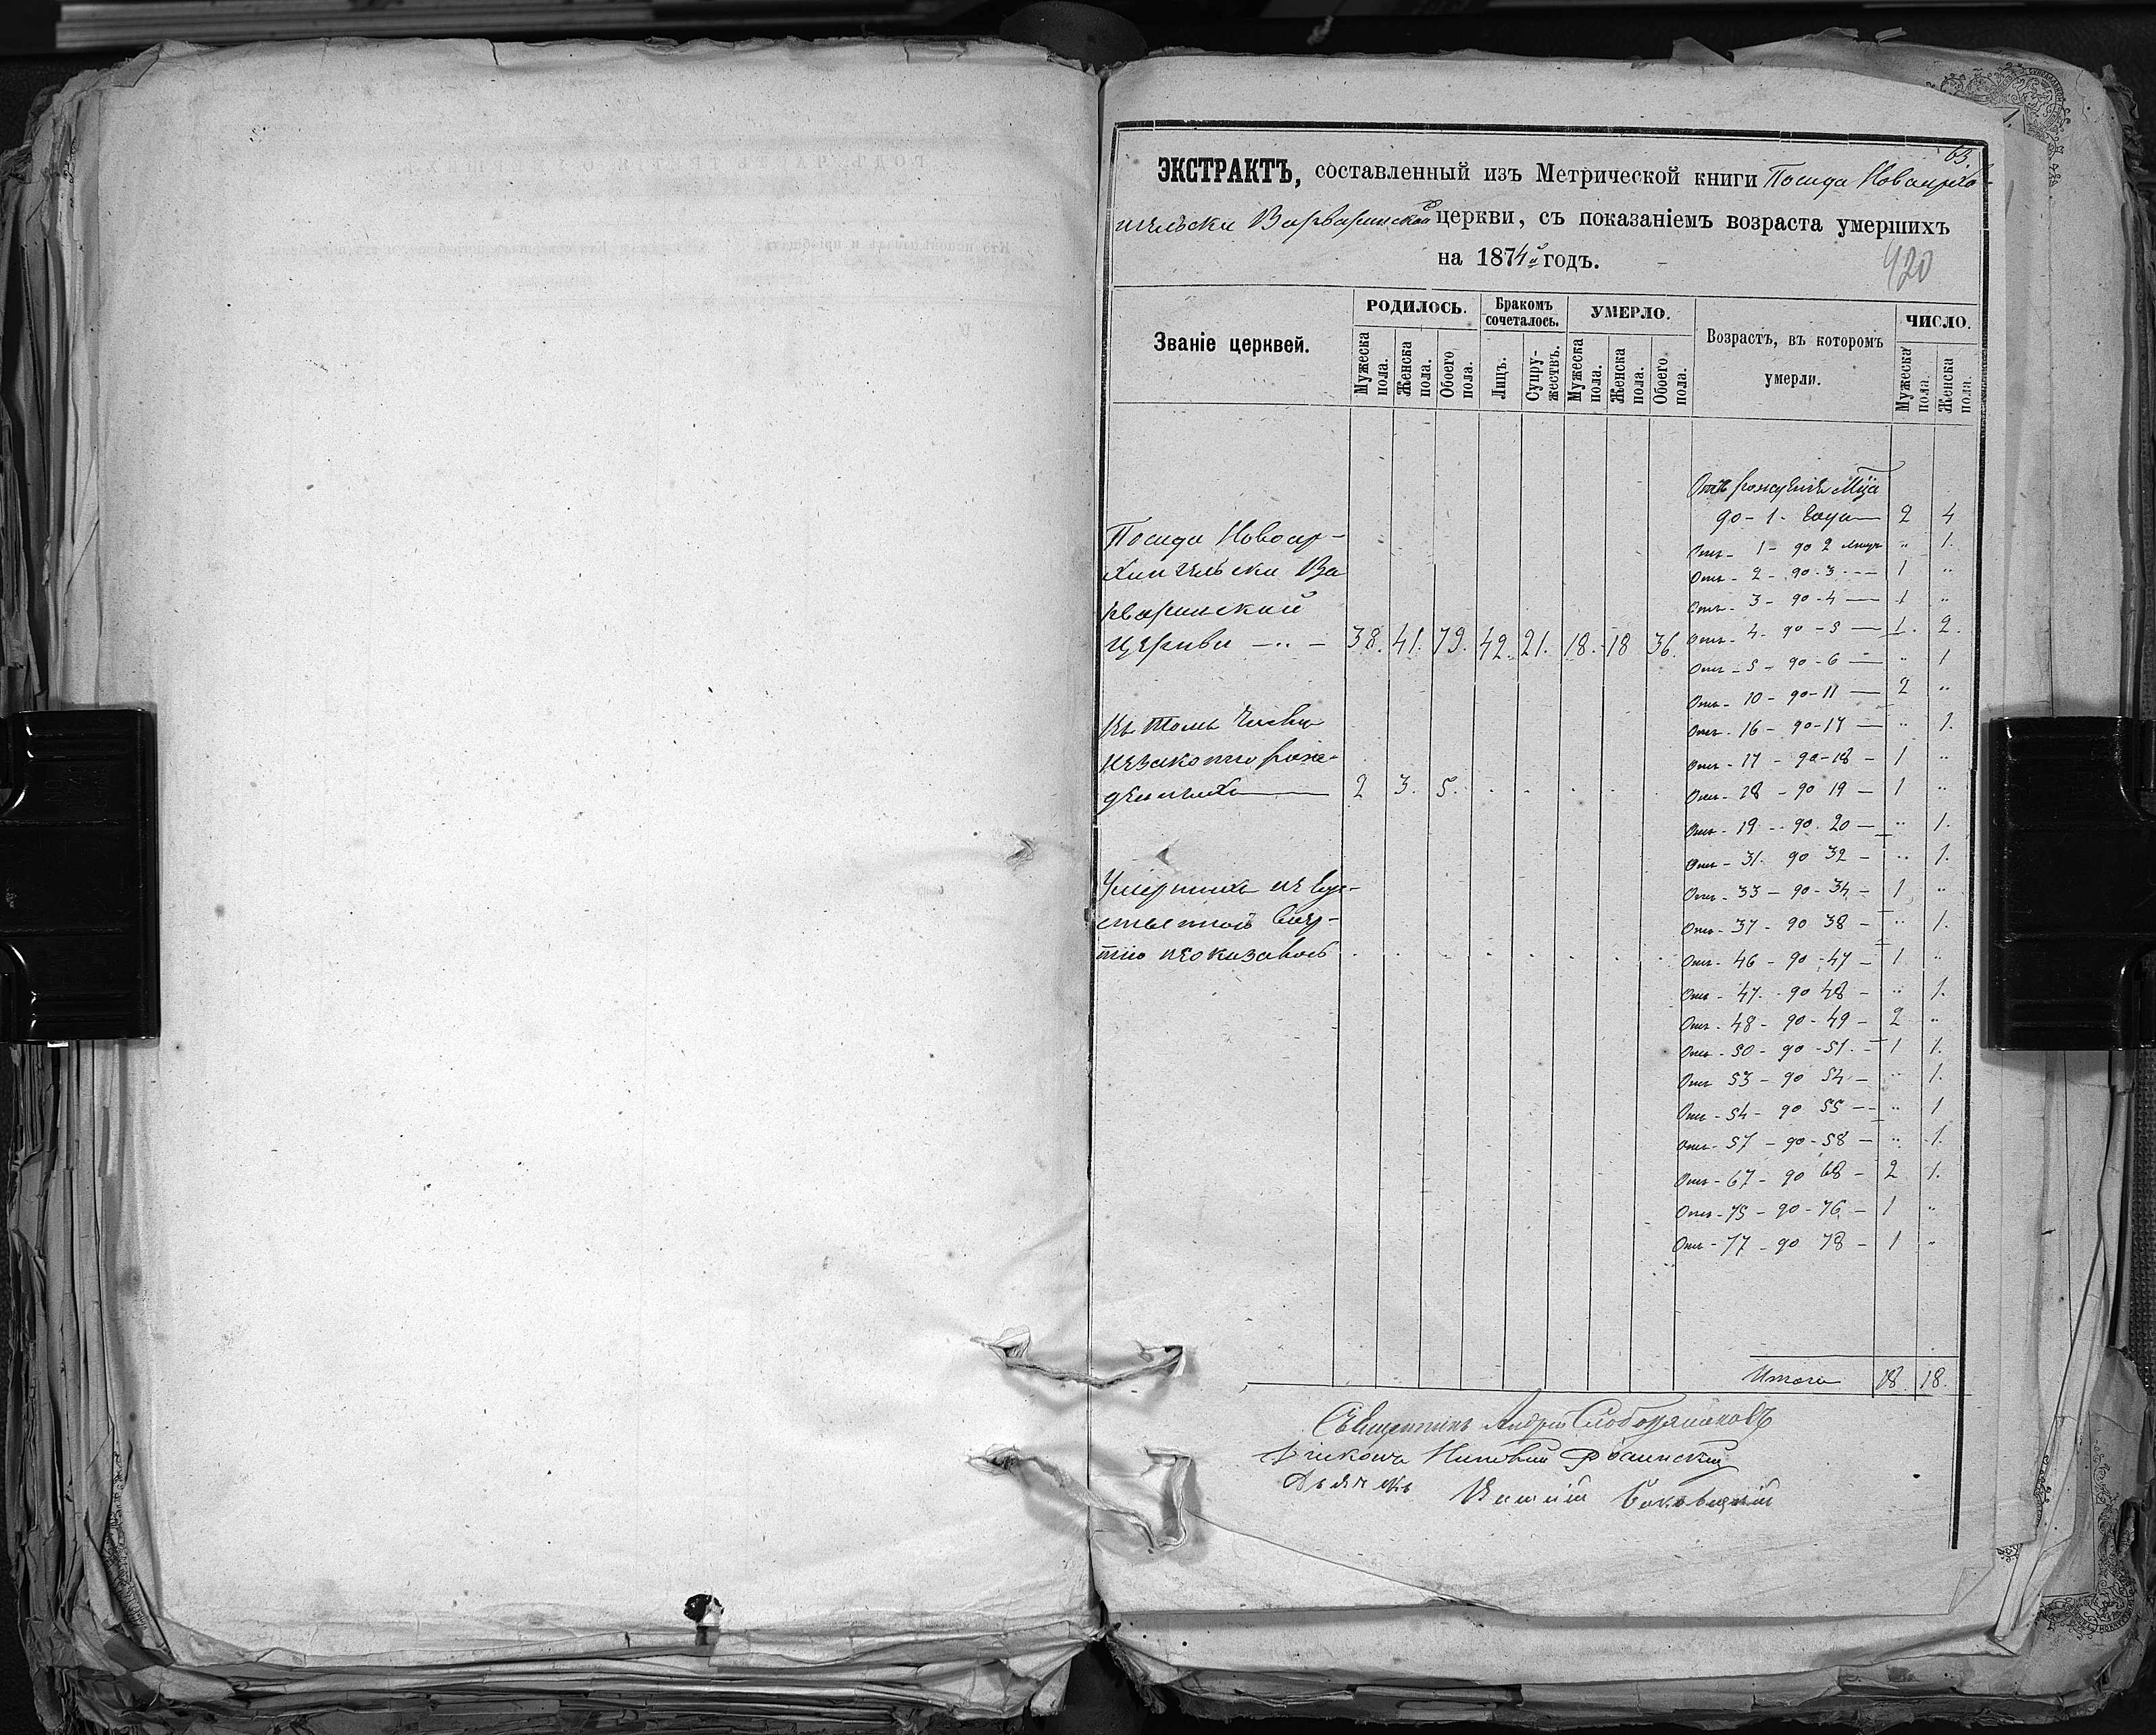 63.
ЭКСТРАКТЪ, составленный изъ Метрической книги Посада Новоарха-
нгельска Варваринской церкви, съ показаніемъ возраста умершихъ
на 1874й годъ.
420
Званіе церквей.
РОДИЛОСЬ.
Бракомъ сочеталось.
УМЕРЛО.
Возрастъ, въ которомъ умерли.
ЧИСЛО.
Мужеска пола.
Женска пола.
Обоего пола.
Лицъ.
Супружествъ.
Мужеска пола.
Женска пола.
Обоего пола.
Мужеска пола.
Женска пола.
Посада Новоар-
хангельска Ва
рваринской
церкви — 38. 41. 79. 42. 21. 18. 18 36.
Въ томъ числѣ
незаконно рож-
денныхъ — 2 3. 5.
Умершихъ не
тію неоказалось
Отъ рожденія
до - 1. года — 2 4
Отъ - 1 - до 2 лѣтъ " 1.
Отъ - 2 - до - 3 — 1 "
Отъ - 3 - до - 4 — 1 "
Отъ - 4 - до - 5 — 1. 2.
Отъ - 5 - до - 6 — " 1
Отъ - 10 - до - 11 — 2 "
Отъ - 16 - до - 17 — " 1.
Отъ - 17 - до - 18 - 1 "
Отъ - 18 - до 19 — 1 "
Отъ - 19 - до 20 — " 1.
Отъ - 31. до 32 - " 1.
Отъ - 33 - до - 34 - 1 "
Отъ - 37 - до 38 - " 1.
Отъ - 46 - до - 47 - 1 "
Отъ - 47 - до 48 - " 1.
Отъ - 48 - до - 49 - 2 "
Отъ - 50 - до - 51 - 1 1.
Отъ 53 - до 54 - " 1.
Отъ - 54 - до 55 — " 1
Отъ - 57 - до - 58 — " 1.
Отъ - 67 - до 68 - 2 1.
Отъ - 75 - до - 76 - 1 "
Отъ - 77 - до 78 - 1 "
Итого 18. 18.
Священникъ Андрей
Діаконъ
Дьячекъ